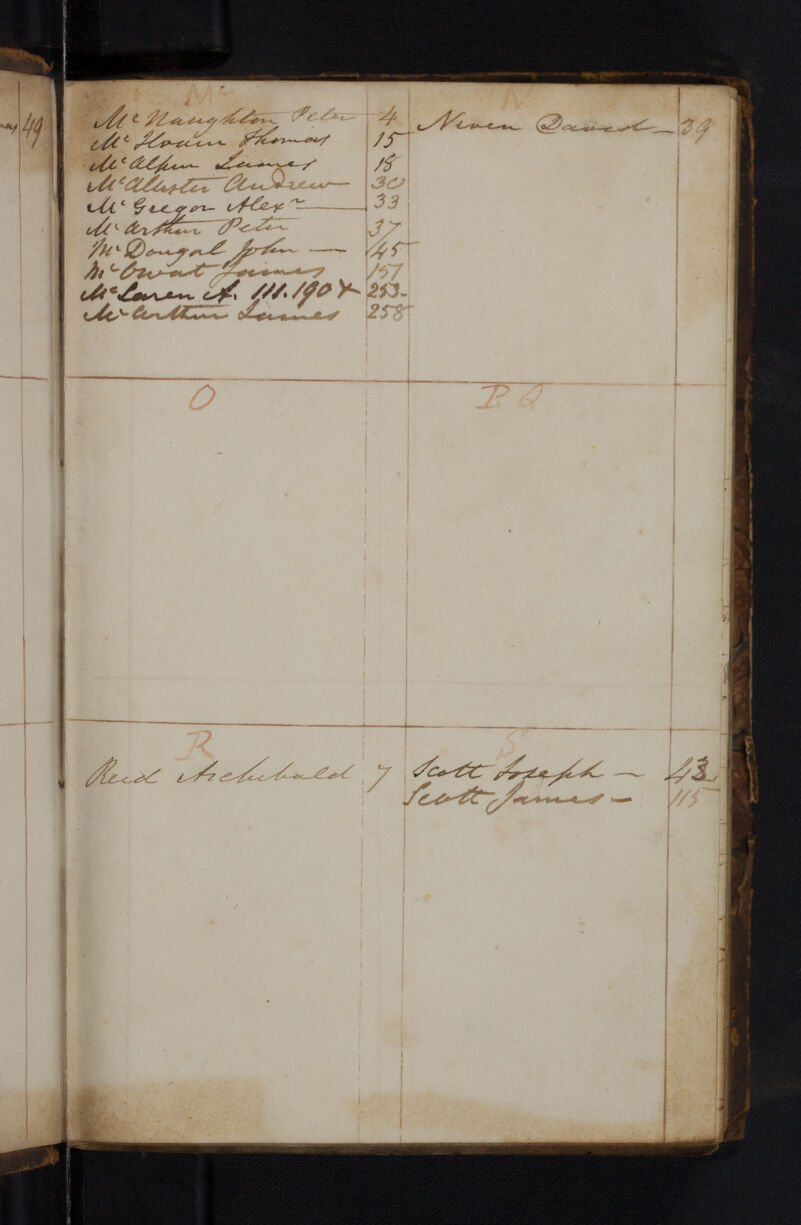 49
Mc
McNaughton Peter 4
McIlvain Thomas 15
McAlpin James 18
McAlister Andrew 30
McGregor Alexr 33
McArthur Peter 37
McDougal John — 145
McOwat James 157
McLaren A. 111.190 & 253
McArthur James 258
N
Niven David — 39
O
P Q
R
Reid Archibald 7
S
Scott Joseph — 43
Scott James — 115